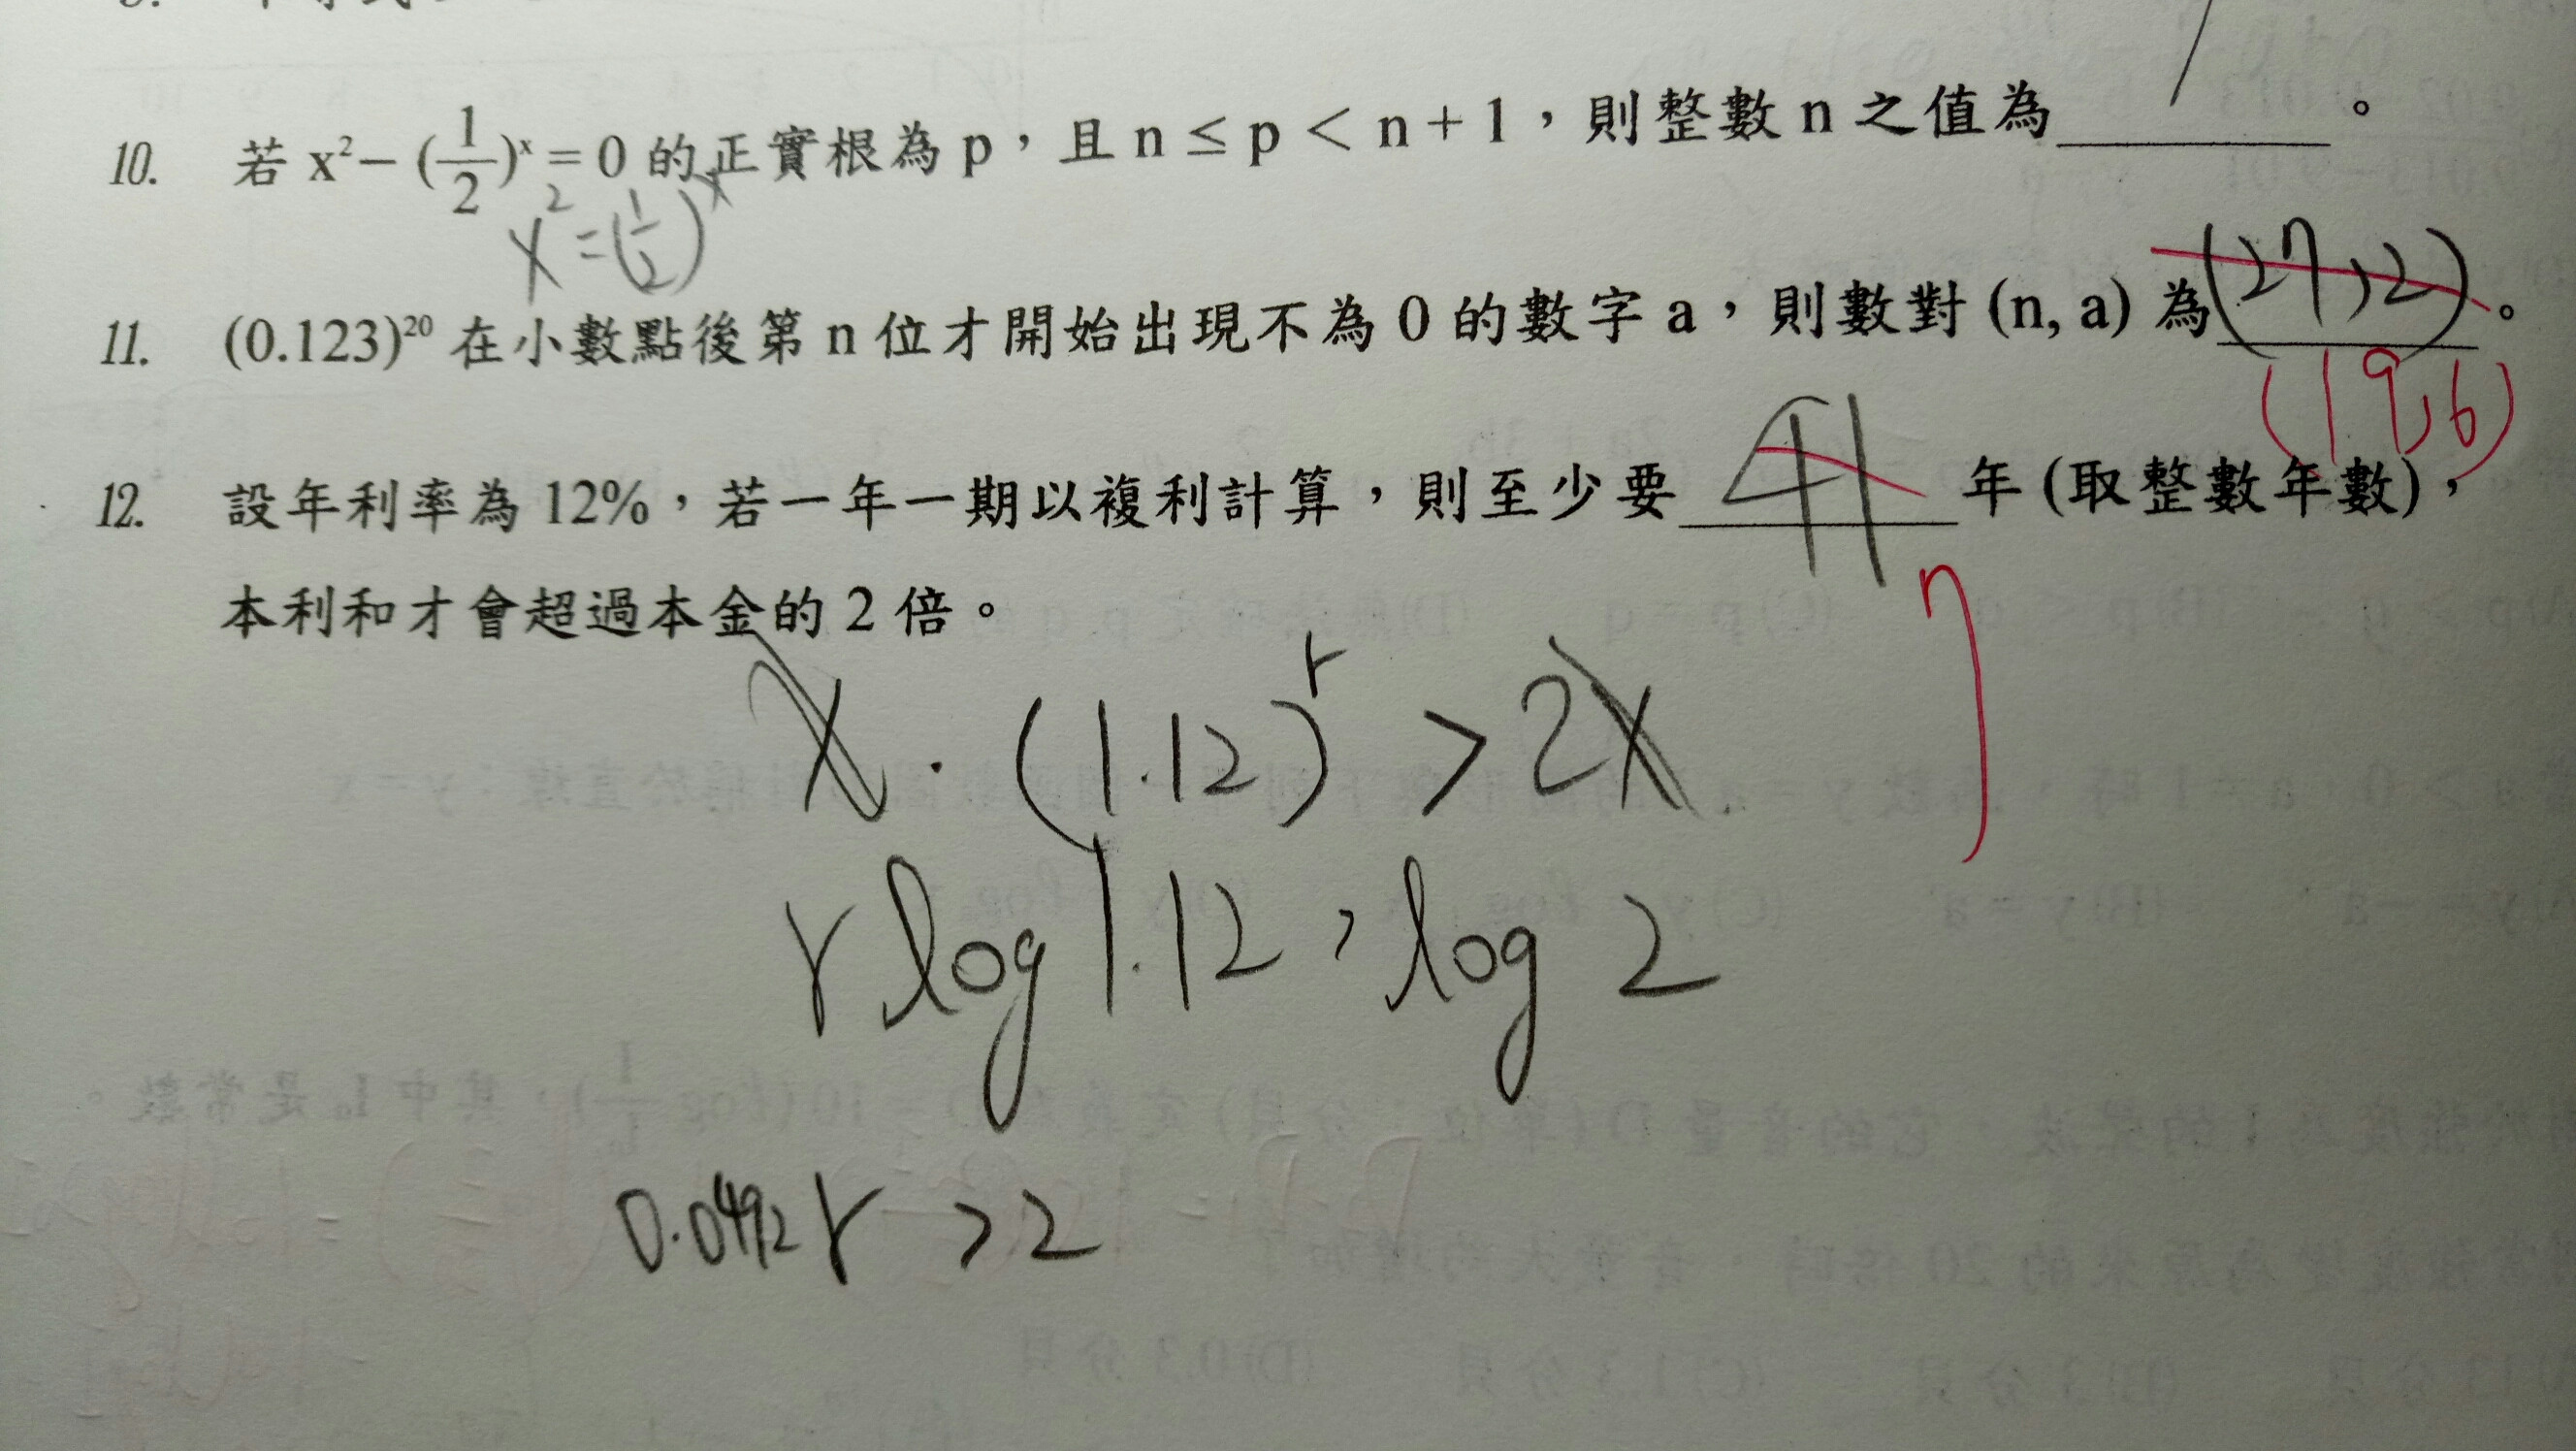 10. 若 x²− (1/2)ˣ = 0 的正實根為 p，且 n ≤ p < n + 1，則整數 n 之值為________。
x² = (1/2)ˣ
11. (0.123)²⁰ 在小數點後第 n 位才開始出現不為 0 的數字 a，則數對 (n, a) 為(27,2)。
(19,6)
12. 設年利率為 12%，若一年一期以複利計算，則至少要 41 年 (取整數年數)，
7
本利和才會超過本金的 2 倍。
x · (1.12)ʳ > 2x
r log 1.12 > log 2
0.0492 r > 2